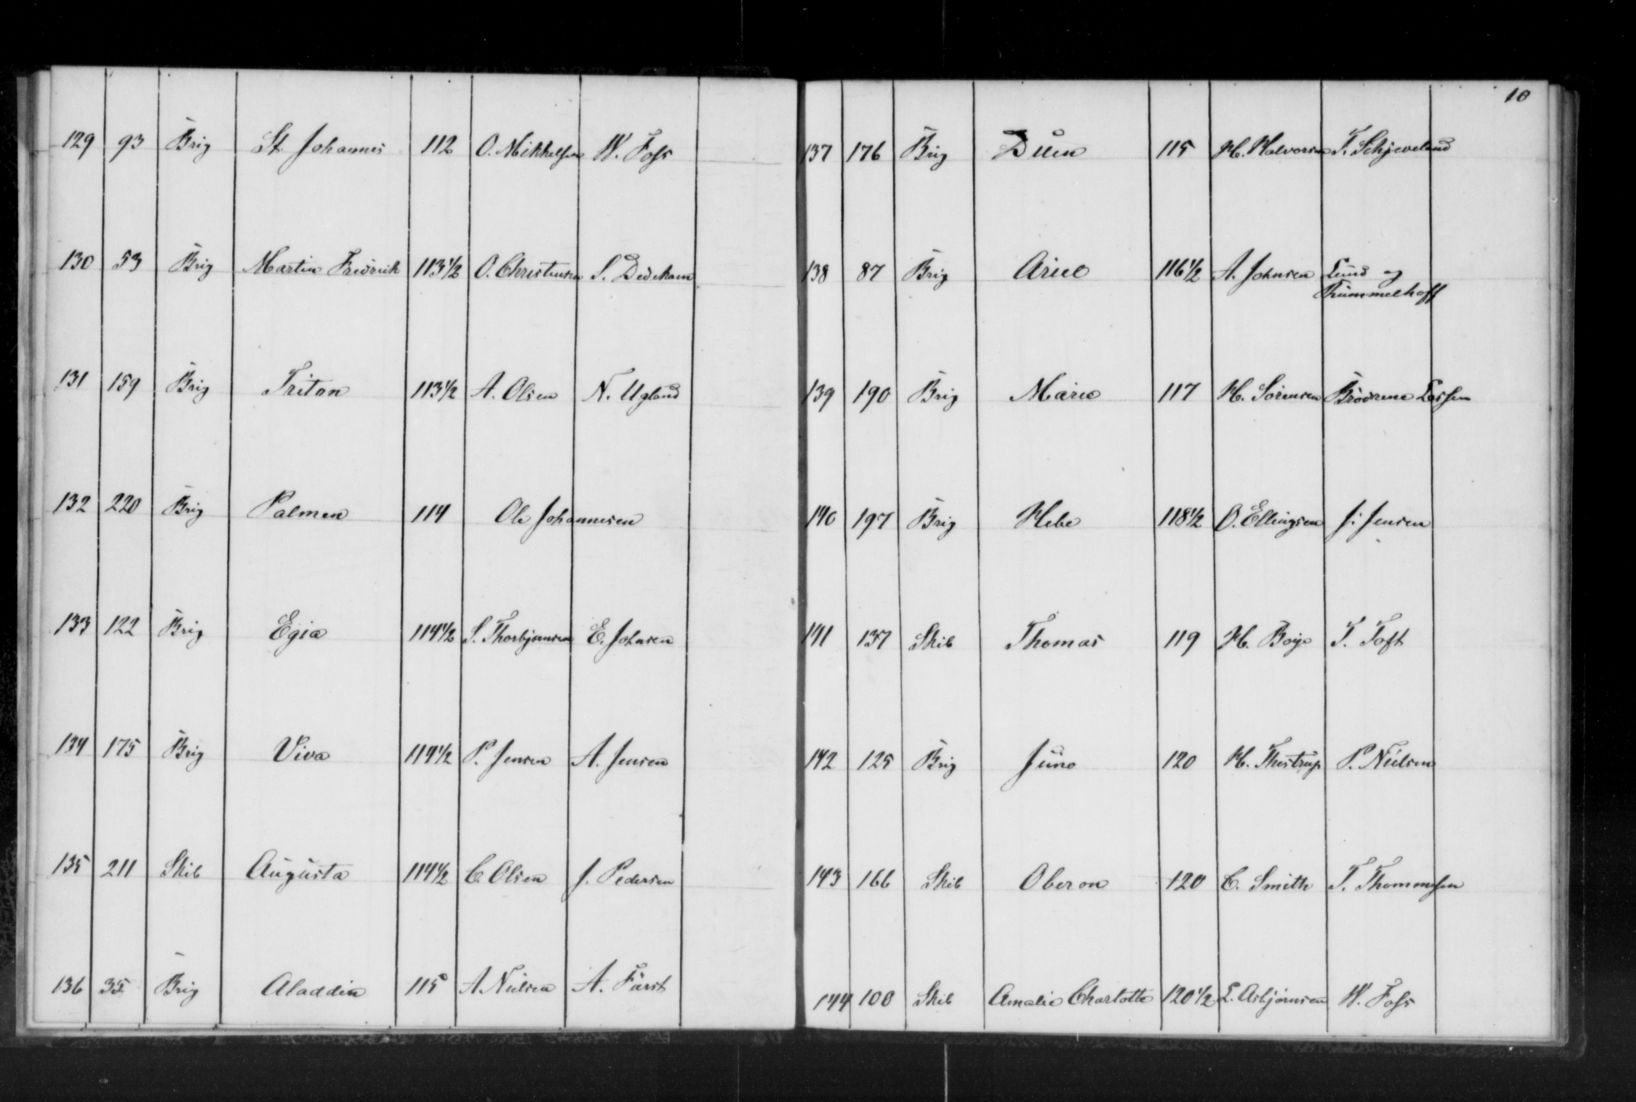 129 93 Brig St. Johannes 112 O. Mikkelsen W. Foss
130 53 Brig Martin Fredrick 113 1/2 O. Christensen S. Dedekam
131 159 Brig Triton 113 1/2 A. Olsen N. Ugland
132 220 Brig Palmen 114 Ole Johannesen
133 122 Brig Egia 114 1/2 S. Thorbjørnsen E. Johnsen
134 175 Brig Viva 114 1/2 P. Jensen A. Jensen
135 211 Skib Augusta 114 1/2 C Olsen J. Pedersen
136 35 Brig Aladdin 115 A. Nielsen A. Fürst
10
137 176 Brig Duen 115 H. Halvorsen T. Schjeveland
138 87 Brig Ariel 116 1/2 A. Johnsen Lund og
Thümmelhoff
139 190 Brig Marie 117 H. Sørensen Brödrene Lassen
140 197 Brig Hebe 118 1/2 O. Ellingsen J. Jensen
141 137 Skib Thomas 119 H. Boye T. Toft
142 125 Brig Juno 120 H. Thestrup P. Nielsen
143 166 Skib Oberon 120 C. Smith T. Thommesen
144 100 Skib Amalie Charlotte 120 1/2 T. Asbjørnsen W. Foss